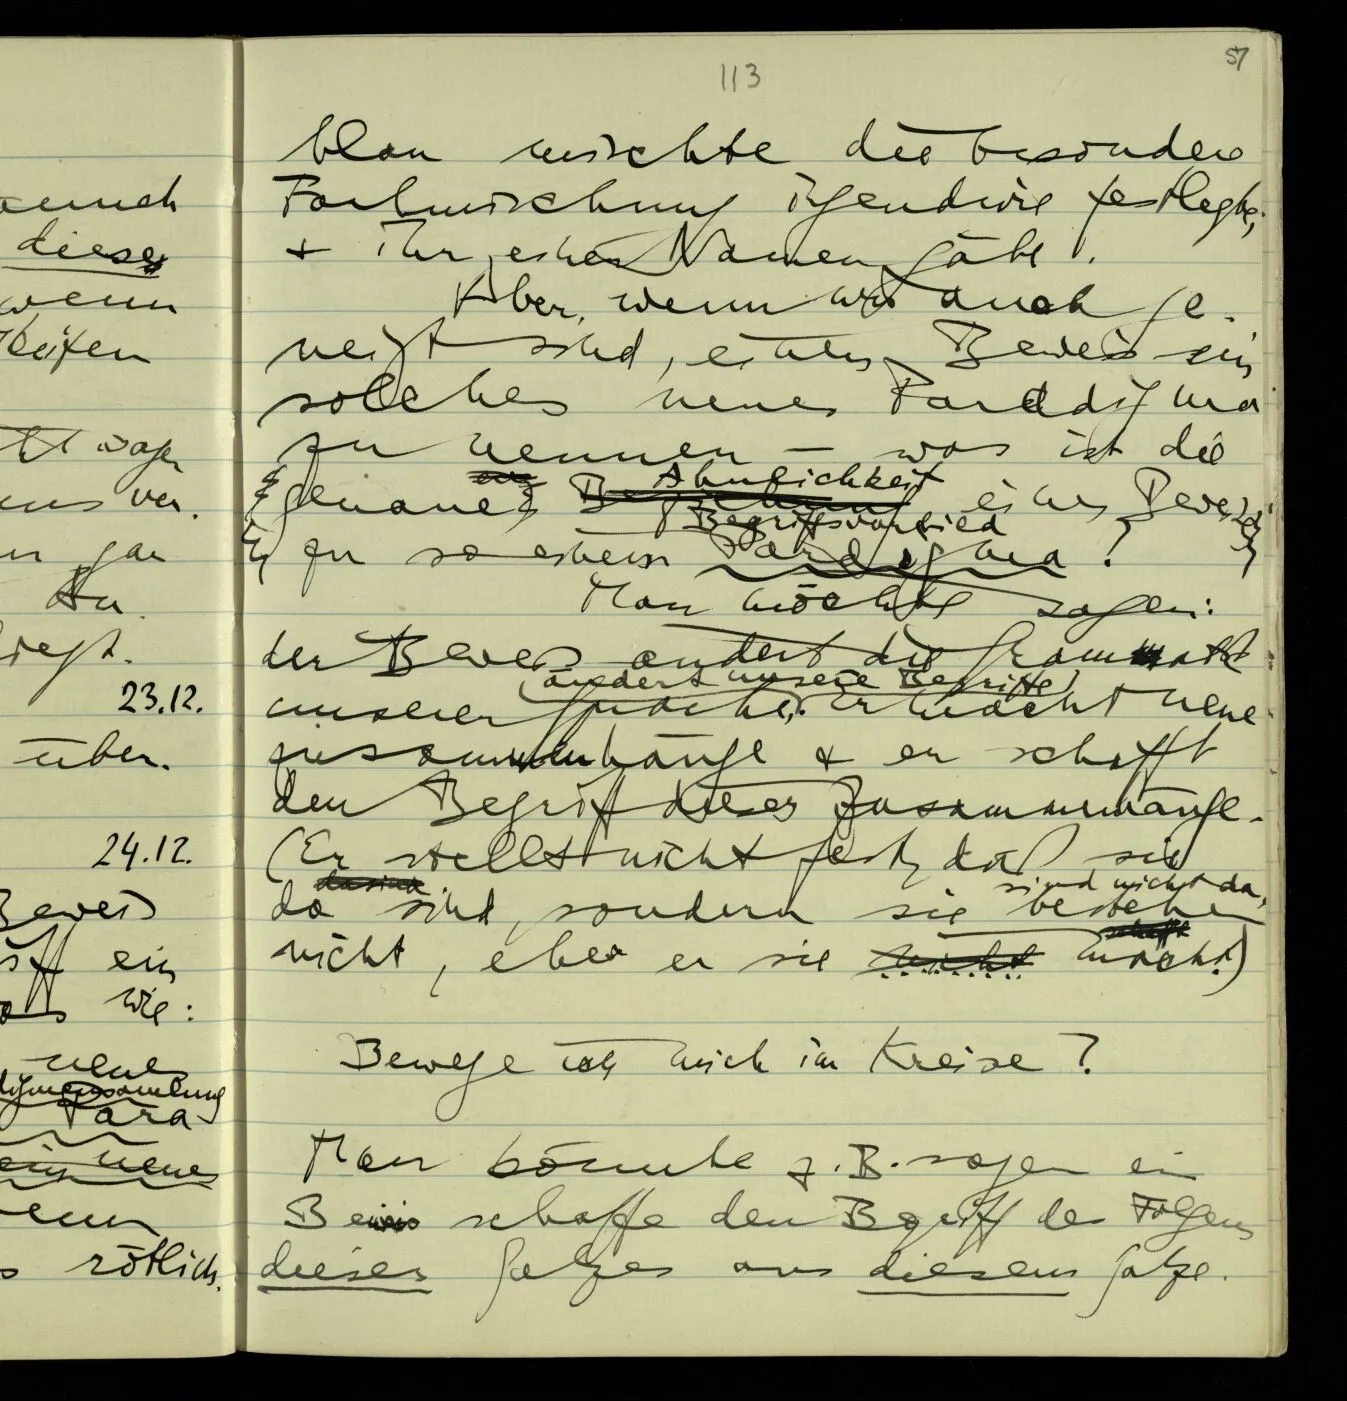 113
57
auch
diese
wenn
gar
23.12.
über.
24.12.
Beweis
ein
wie:
neue
Para-
ein neues
rötlich
blau mischte die besondere
Farbmischung irgendwie festlegte,
+ ihr einen Namen gäbe.
Aber, wenn wir auch ge-
neigt sind, einen Beweis ein
solches neues Paradigma
zu nennen – was ist die
genaue Ähnlichkeit eines Beweises
Begriffsvorbild
zu so einem Paradigma?
Man möchte sagen:
der Beweis ändert die Grammatik
(ändert unsere Begriffe)
unserer Sprache. Er macht neue
Zusammenhänge + er schafft
den Begriff dieser Zusammenhänge.
(Er stellt nicht fest, daß sie
sind nicht da,
da sind, sondern sie bestehen
nicht, ehe er sie nicht macht.)
Bewege ich mich im Kreise?
Man könnte z.B. sagen ein
Beweis schaffe den Begriff des Folgens
dieses Satzes aus diesem Satze.